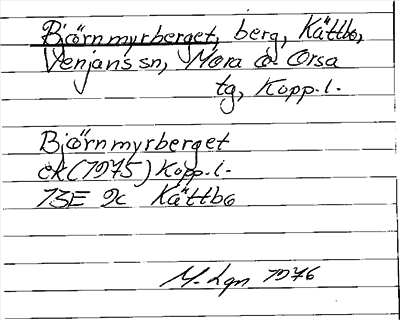 Björnmyrberget, berg, Kättbo,
Venjans sn, Mora o. Orsa
tg, Kopp.l.
Björnmyrberget
ek (1975) Kopp.l.
13E 9c Kättbo
M. Lgn 1976